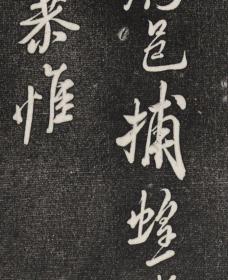 邑捕蝗
恭惟